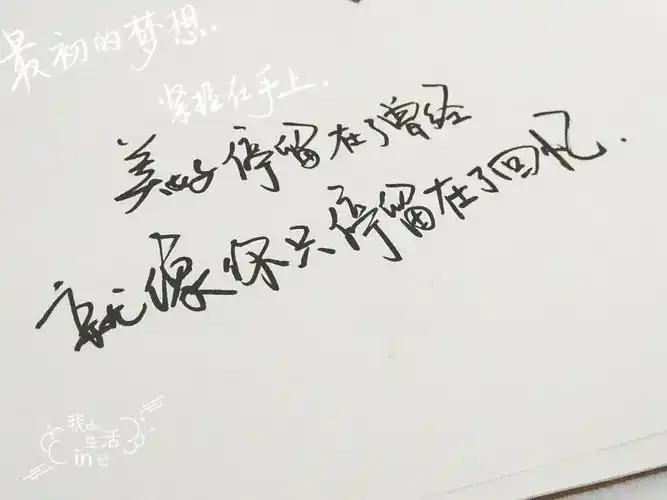 最初的梦想.
紧握在手上.
美好停留在了曾经
就像你只停留在了回忆.
我de
生活
in记